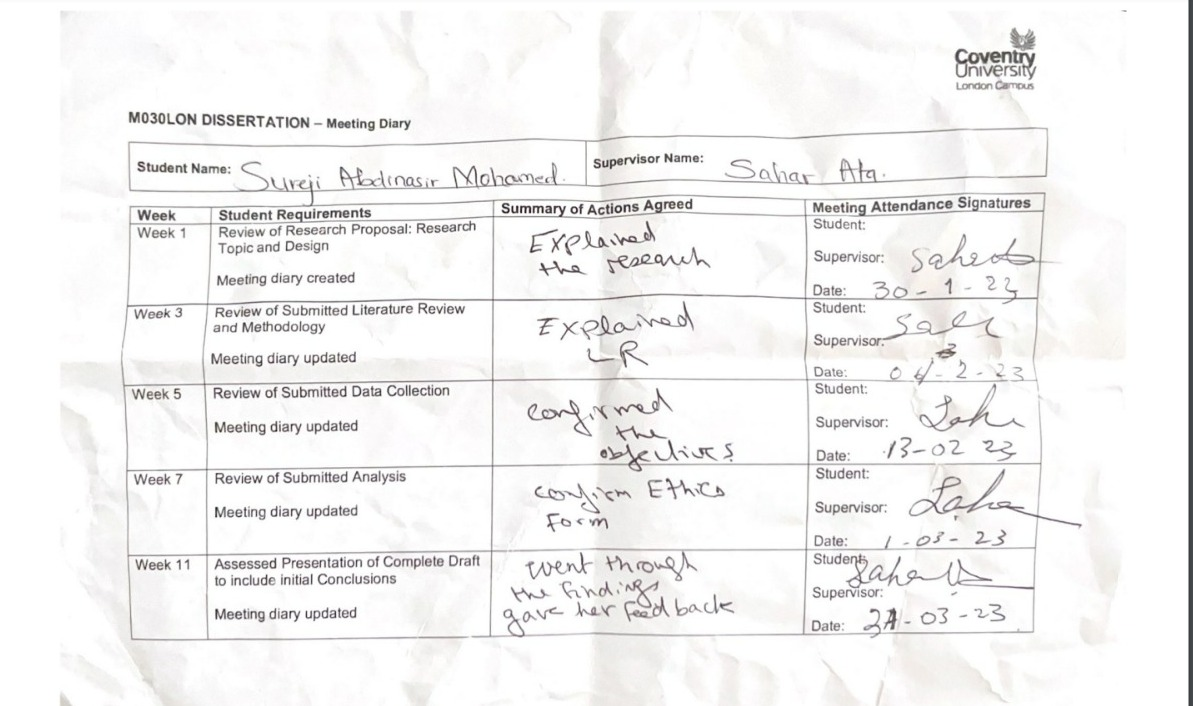 Coventry
University
London Campus
M030LON DISSERTATION – Meeting Diary
Student Name: Sureji Abdinasir Mohamed.
Supervisor Name: Sahar Ata.
Week
Student Requirements
Summary of Actions Agreed
Meeting Attendance Signatures
Week 1
Review of Research Proposal: Research
Topic and Design
Meeting diary created
Explained
the research
Student:
Supervisor:
Date: 30-1-23
Week 3
Review of Submitted Literature Review
and Methodology
Meeting diary updated
Explained
LR
Student:
Supervisor:
Date:
Week 5
Review of Submitted Data Collection
Meeting diary updated
confirmed
the
objectives
Student:
Supervisor:
Date: 13-02 23
Week 7
Review of Submitted Analysis
Meeting diary updated
confirm Ethics
Form
Student:
Supervisor:
Date: 1-03-23
Week 11
Assessed Presentation of Complete Draft
to include initial Conclusions
Meeting diary updated
went through
the findings
gave her feedback
Student:
Supervisor:
Date: -03-23